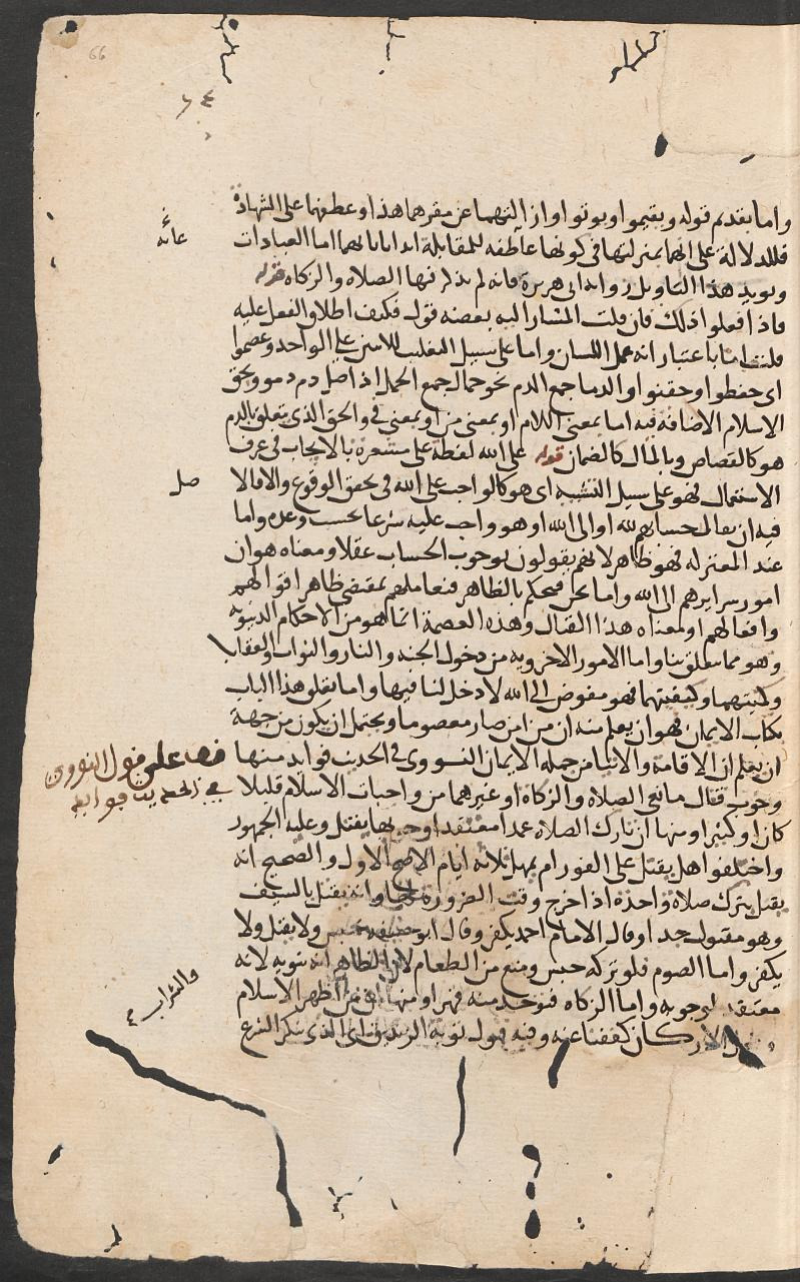 66
٦٤
واما بقديم قوله ويقيموا ويوتوا او ازالتهما عن مقرهما هذا وعطفهما على الشهادة
فللدلالة على انهما بمنزلتها في كونها عاطفه للمقابلة
غائه
ويويد هذا التاويل رواية ابي هريرة فانه لم يذكر فيها الصلاه والزكاه قوله
فاذا فعلوا ذلك فان قلت المشار اليه بعضه قول فكيف اطلاق الفعل عليه
قلت اما باعتبار انه عمل اللسان واما على سبيل التغليب للاثنين على الواحد وعصموا
اى حفظوا وحقنوا والدما جمع الدم نحو جمال جمع الجمل اذ اصل دم دمو وبحق
الاسلام الاضافة فيه اما بمعنى اللام او بمعنى من او بمعنى في والحق الذى يتعلق بالدم
هو كالقصاص وبالمال كالضمان قوله على الله لفظة على مشعرة بالايجاب في عرف
الاستعمال فهو على سبيل التشبيه اى هو كالواجب على الله في تحقق الوقوع والا فالا
صل
فيه ان يقال حسابهم لله او الى الله او هو واجب عليه شرعا بحسب وعده واما
عند المعتزله فهو ظاهر لانهم يقولون بوجوب الحساب عقلا ومعناه هو ان
امور سرايرهم الى الله واما نحن فنحكم بالظاهر فنعاملهم بمقتضى ظاهر اقوالهم
وافعالهم او معناه هذا القتال وهذه العصمة انما هو من الاحكام الدنيويه
وهو مما يتعلق بنا واما الامور الاخرويه من دخول الجنه والنار والثواب والعقاب
وكميتهما وكيفيتهما فهو مفوض الى الله لا دخل لنا فيها واما تعلق هذا الباب
بكتاب الايمان فهو ان يعلم منه ان من امن صار معصوما ويحتمل ان يكون من جهة
ان يعلم ان الاقامة والايتا من جمله الايمان النووى في الحديث فوايد منها
على قول النووى
في الحديث فوايد
وجوب قتال مانعى الصلاة والزكاة او غيرهما من واجبات الاسلام قليلا
كان او كثيرا ومنها ان تارك الصلاة عمدا معتقدا وجوبها يقتل وعليه الجمهور
واختلفوا هل يقتل على الفور ام يمهل ثلاثه ايام الاصح الاول والصحيح انه
يقتل بترك صلاة واحدة اذا خرج وقت الضرورة لها وانه يقتل بالسيف
وهو مقتول حدا وقال الامام احمد يكفر وقال ابو حنيفه يحبس ولا يقتل ولا
يكفر واما الصوم فلو تركه حبس ومنع من الطعام لان الظاهر انه ينويه لانه
والشراب
معتقد لوجوبه واما الزكاه فتوخذ منه قهرا ومنها ان من اظهر الاسلام
الاركان كففنا عنه وفيه قبول توبة الزنديق اى الذى ينكر الشرع